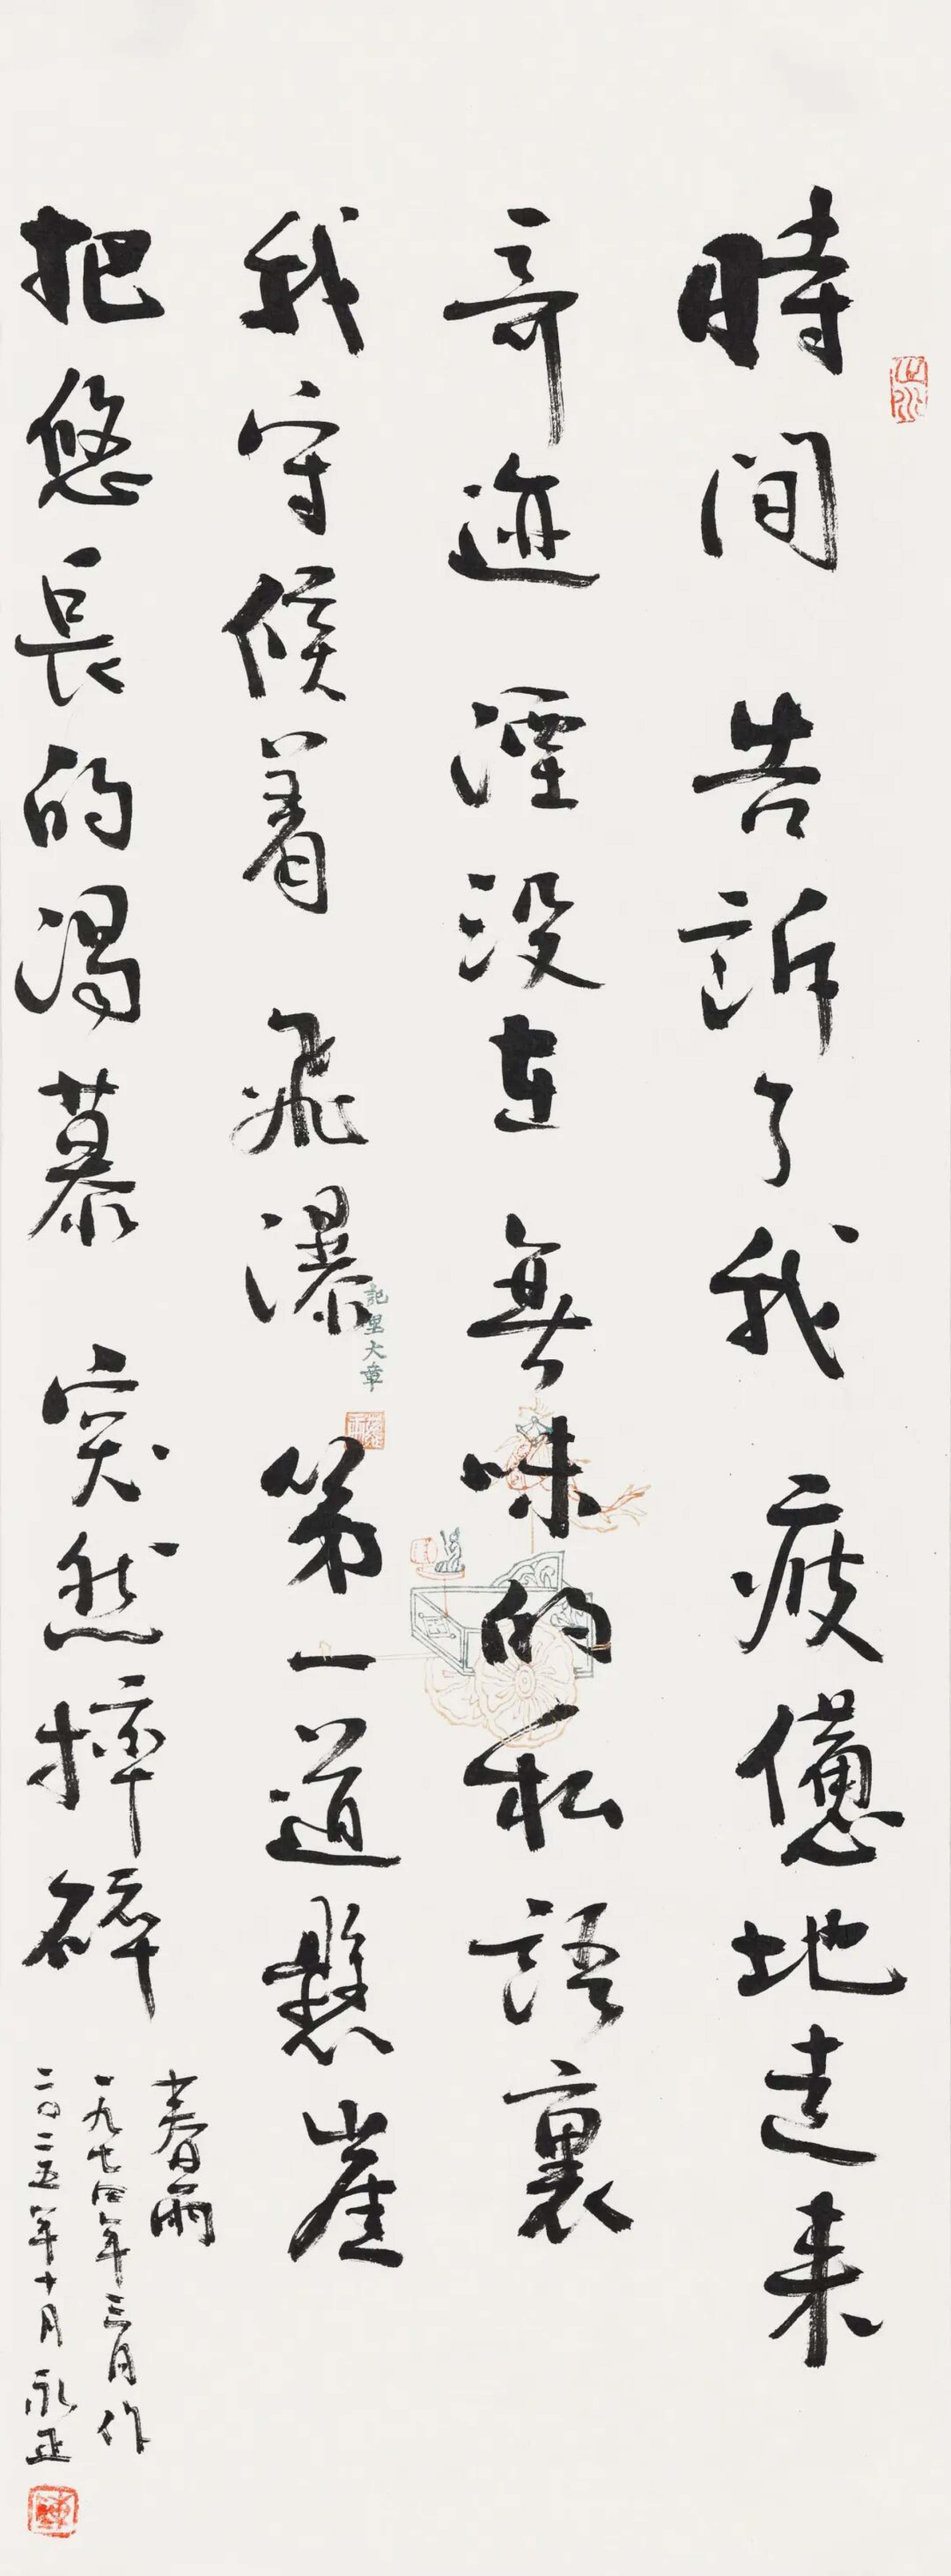 時間 告訴了我 疲憊地走来
奇迹 湮没在 無味的私語裏
我守候着 飛瀑 第一道懸崖
把悠長的渴慕 突然摔碎
春雨
一九七四年三月作
二〇二五年十月 永正
記里大章